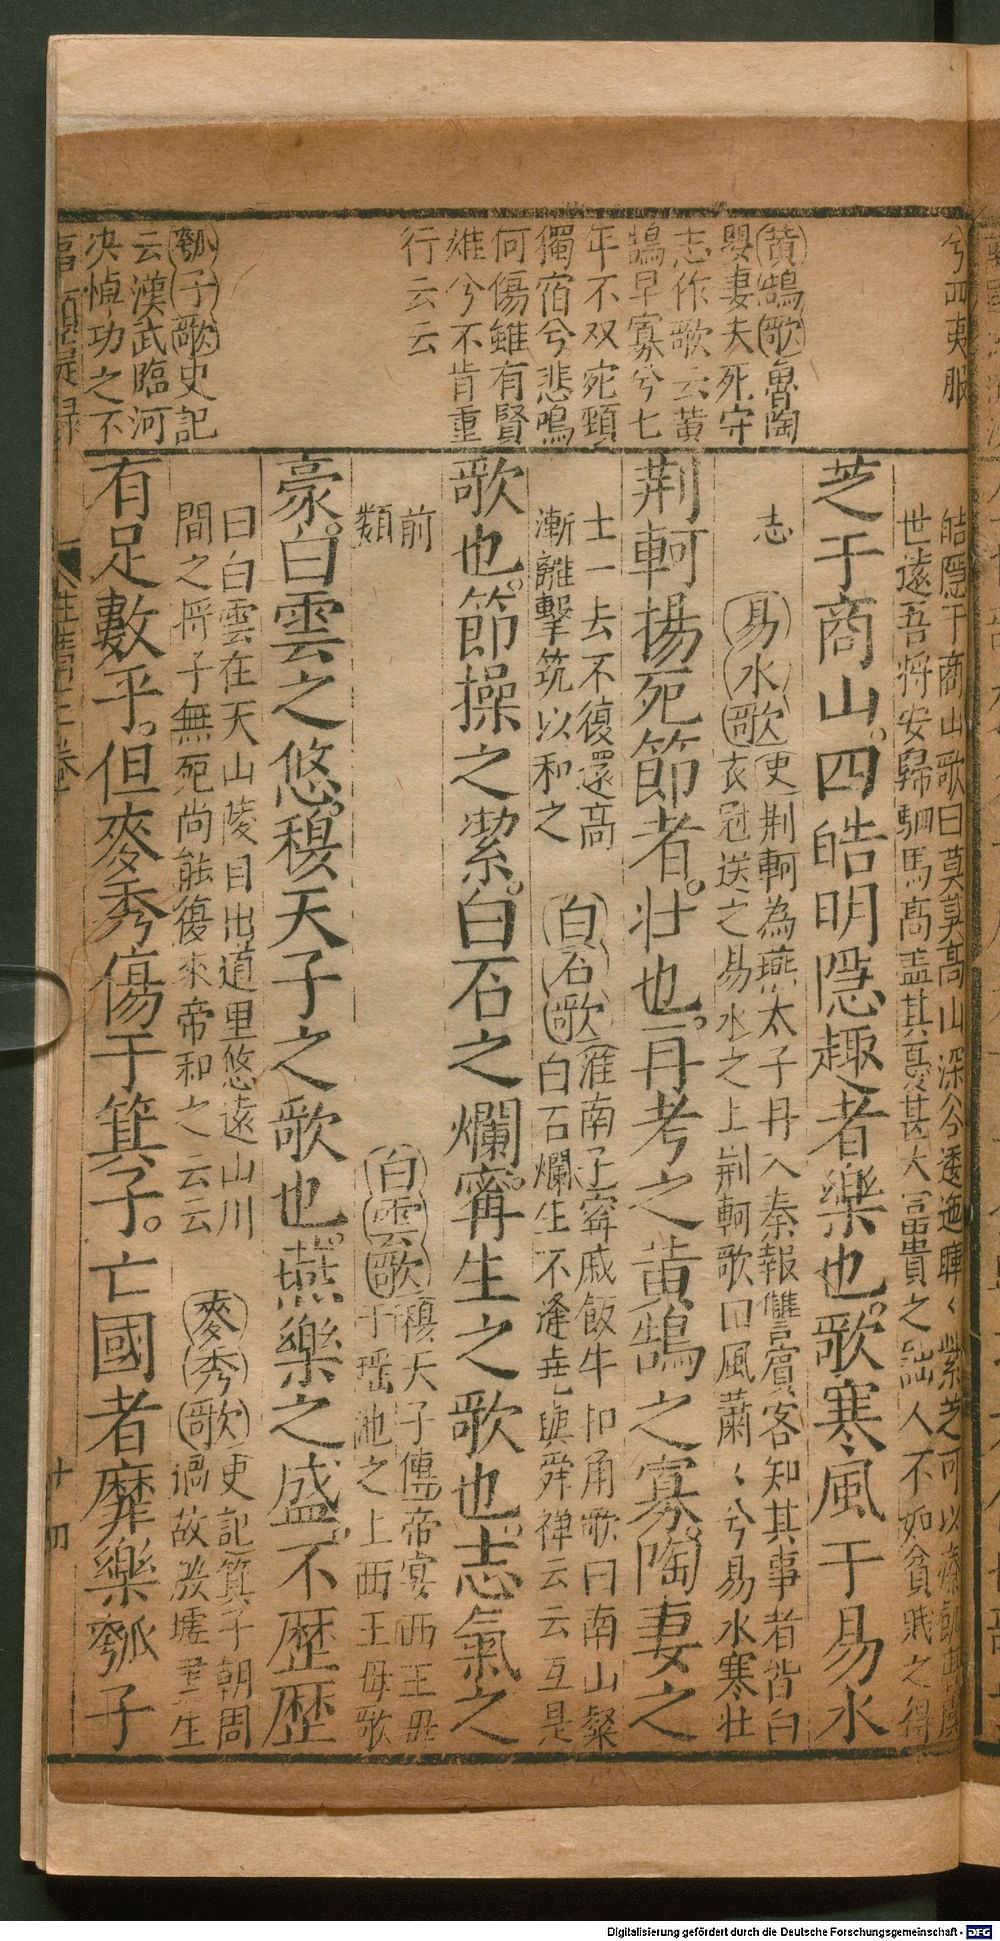 兮四夷服
黃鵠歌魯陶
嬰妻夫死守
志作歌云黃
鵠早寡兮七
年不双宛頸
獨宿兮悲鳴
何傷雖有賢
雄兮不肯重
行云云
瓠子歌史記
云漢武臨河
决悼功之不
皓隱于商山歌曰莫莫髙山深谷逶迤曄〻紫芝可以療飢唐虞
世遠吾將安歸駟馬髙盖其憂甚大冨貴之詘人不如貧贱之得
芝于商山四皓明隱趣者樂也歌寒風于易水
志
易水歌史荆軻為燕太子丹入秦報讐賓客知其事者皆白
衣冠送之易水之上荆軻歌曰風蕭〻兮易水寒壮
荆軻揚死節者壮也再考之黃鵠之寡陶妻之
士一去不復還髙
漸離擊筑以和之
白石歌淮南子寗戚飯牛扣角歌曰南山粲
白石爛生不逢尭與舜禅云云互是
歌也節操之潔白石之爛寗生之歌也志氣之
前
類
白雲歌穆天子傳帝宴西王母
于瑶池之上西王母歌
豪白雲之悠穆天子之歌也燕樂之盛不歴歴
曰白雲在天山陵自出道里悠遠山川
間之将子無死尚能復來帝和之云云
麥秀歌史記箕子朝周
過故殷墟羣生
有足數乎但麥秀傷于箕子亡國者靡樂瓠子
十四
Digitalisierung gefördert durch die Deutsche Forschungsgemeinschaft - DFG